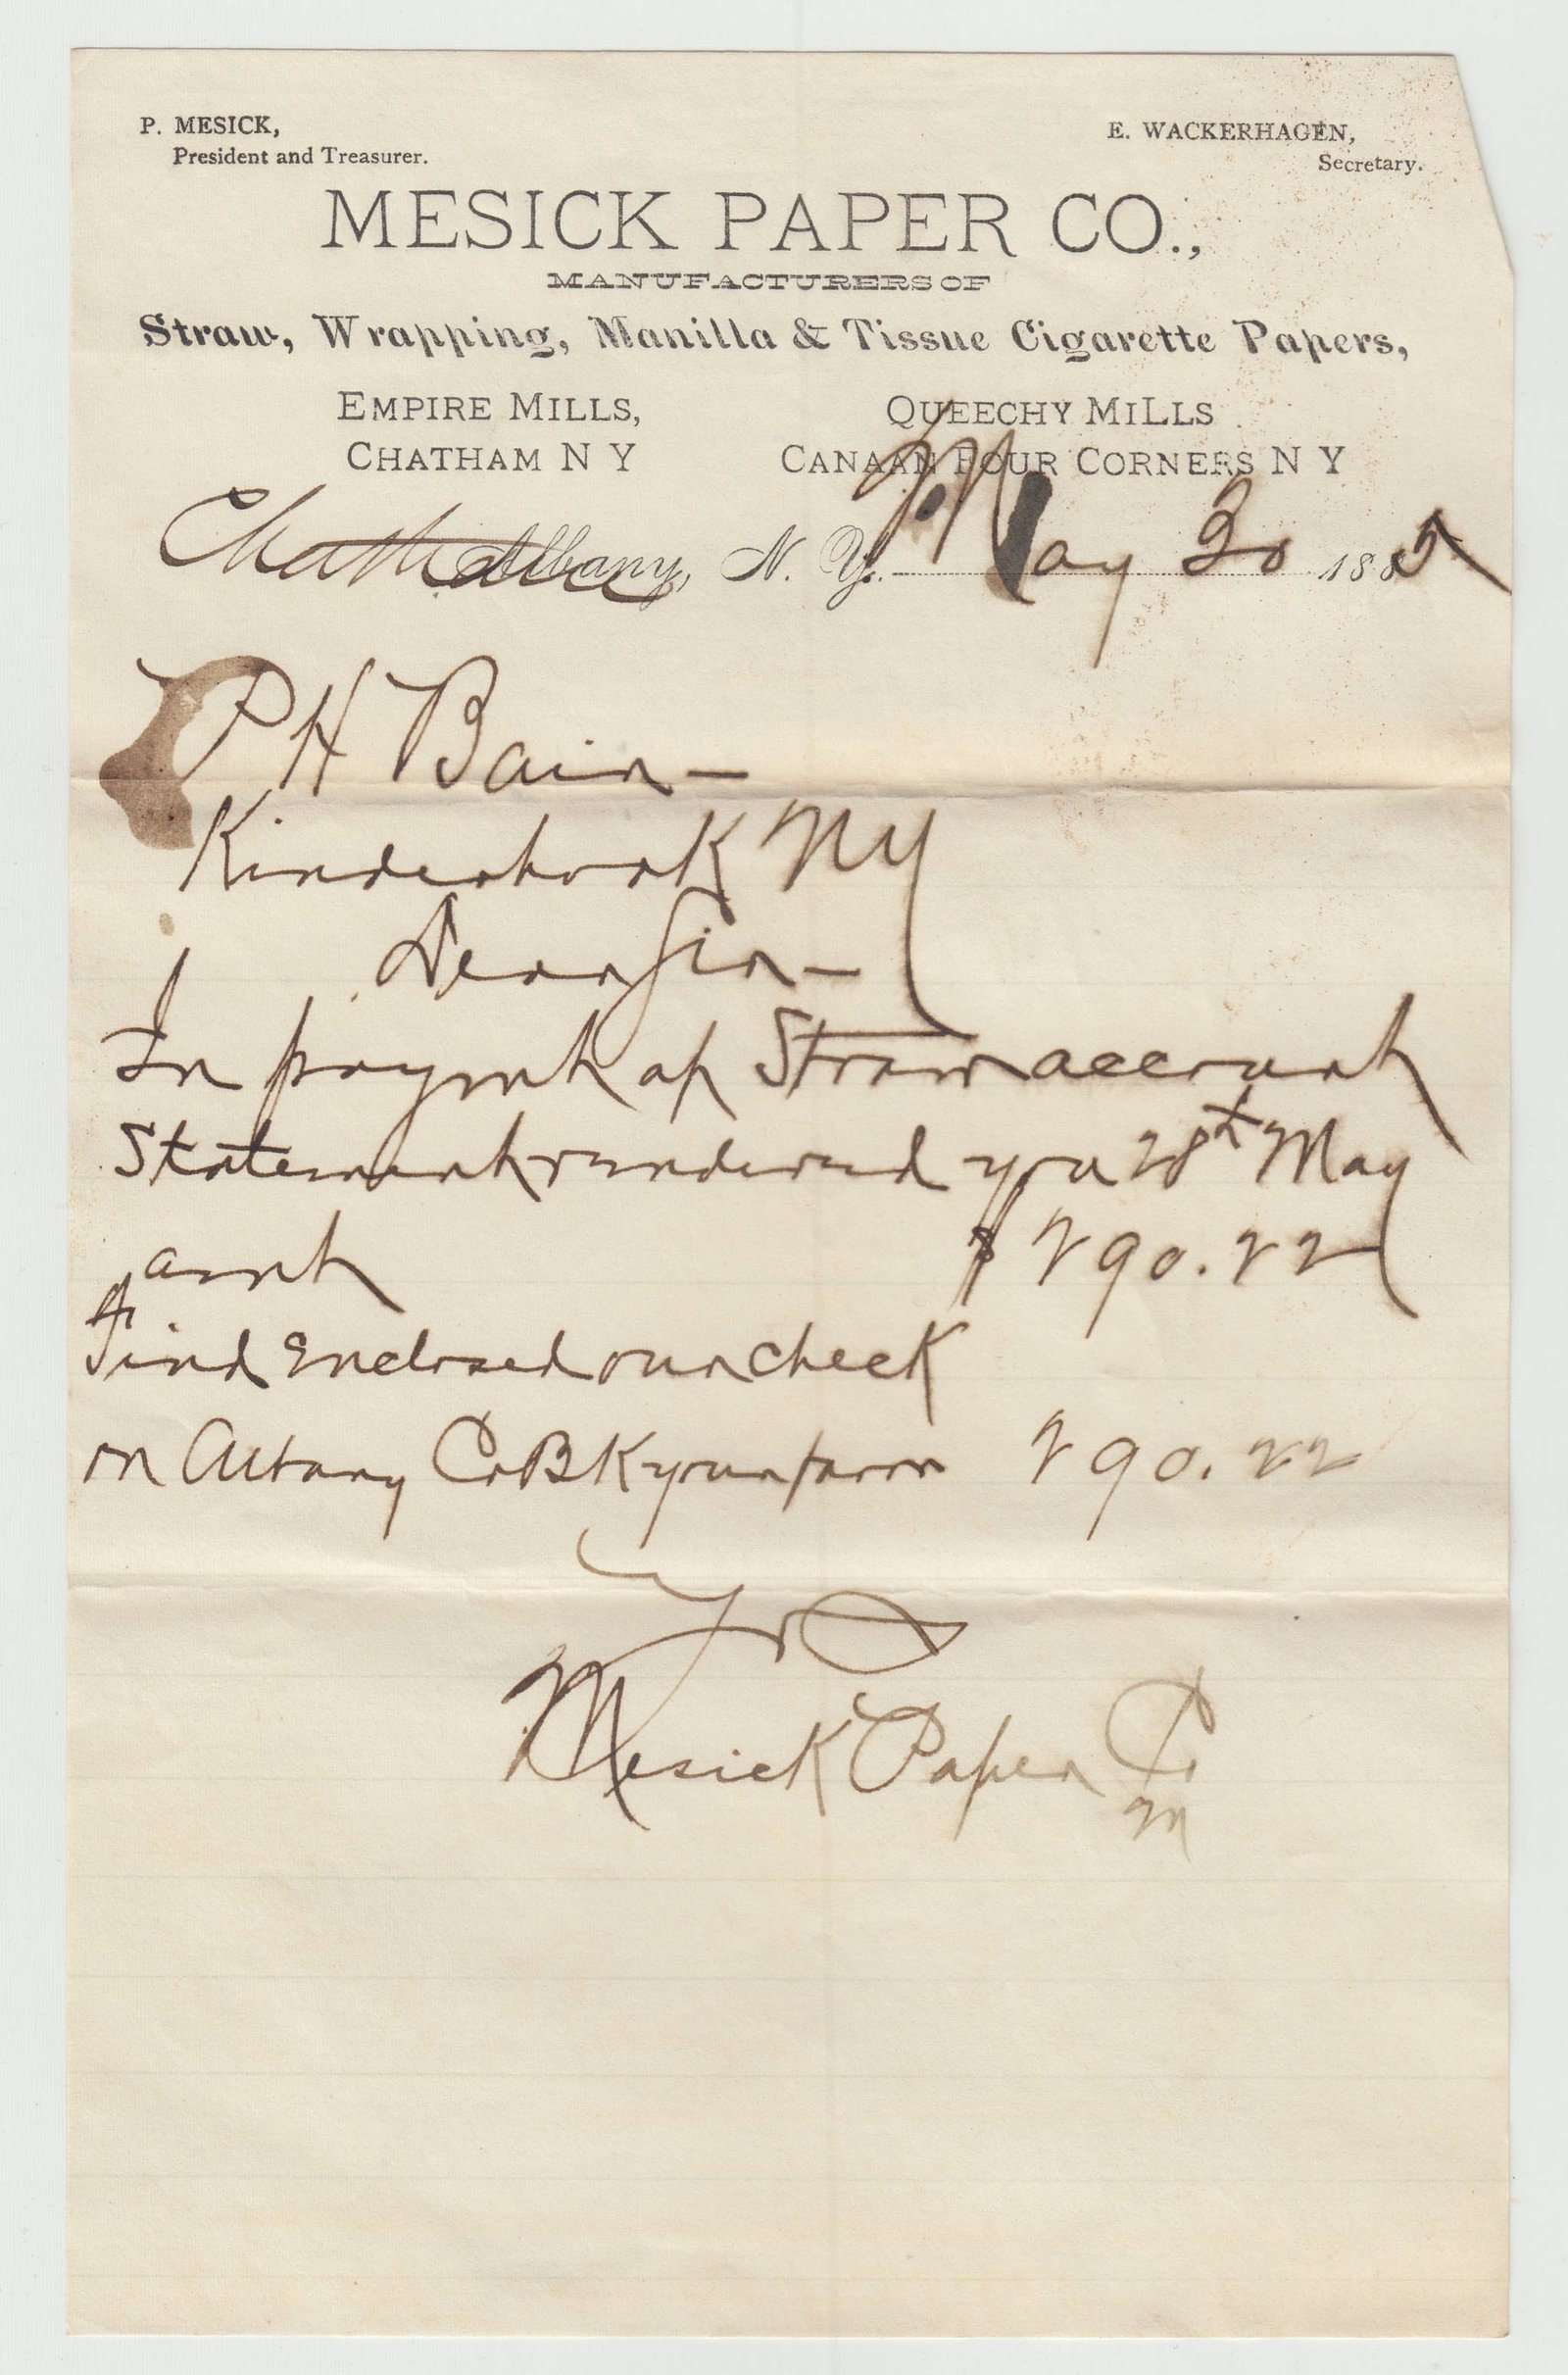 P. MESICK,
President and Treasurer.
E. WACKERHAGEN,
Secretary.
MESICK PAPER CO.,
MANUFACTURERS OF
Straw, Wrapping, Manilla & Tissue Cigarette Papers,
EMPIRE MILLS,
CHATHAM N Y
QUEECHY MILLS
CANAAN FOUR CORNERS N Y
Chatham Albany, N. Y. May 30 1885
P H Bain —
Kinderhook NY
Dear Sir —
In paymt of Straw account
Statement rendered you 28th May
amt $ 290.22
Find Enclosed our check
on Albany Co Bk your favor 290.22
Mesick Paper Co
M